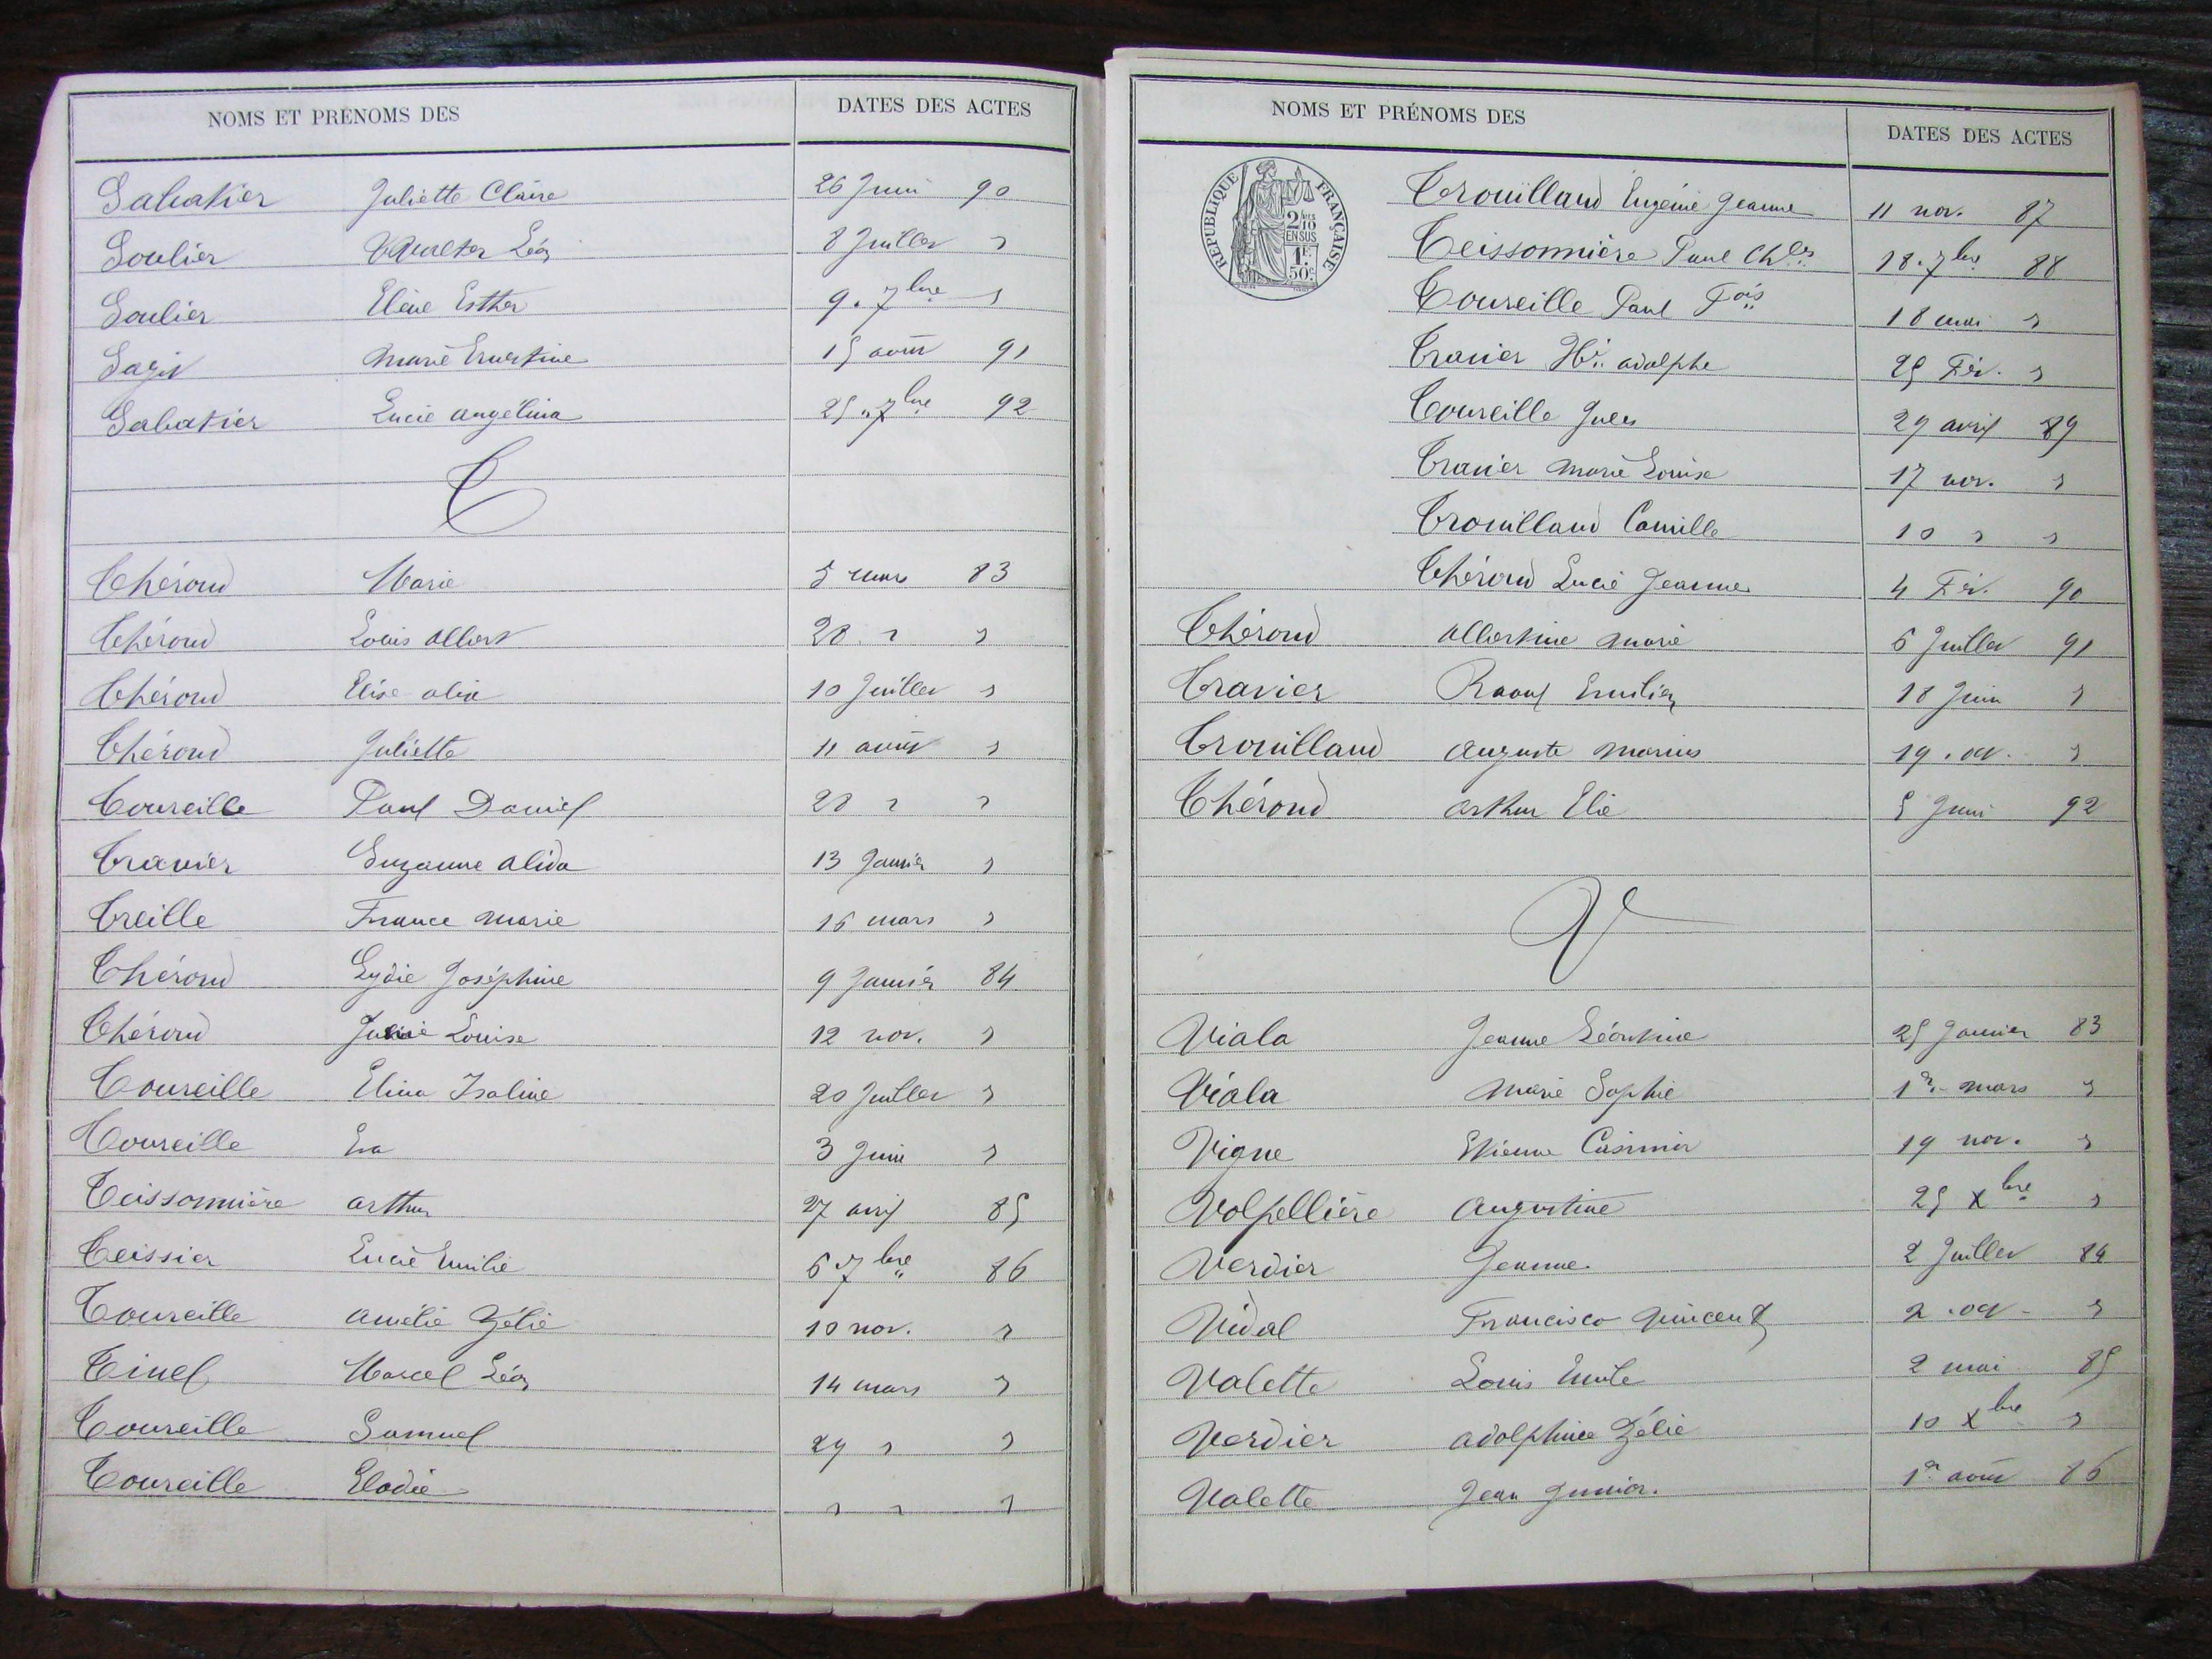 NOMS ET PRÉNOMS DES DATES DES ACTES
Sabatier Juliette Claire 26 Juin 90
Soulier Léon 8 Juillet "
Soulier Elène Esther 9. 7bre "
Marie Ernestine 15 août 91
Sabatier Lucie Angélina 25 " 7bre 92
T
Théroud Marie 5 mars 83
Théroud Louis Albert 28 " "
Théroud Elise Alix 10 Juillet "
Théroud Juliette 11 août "
Toureille Paul Daniel 28 " "
Travier Suzanne Alida 13 Janvier "
Treille France Marie 16 mars "
Théroud Lydie Joséphine 9 Janvier 84
Théroud Louise 12 nov. "
Toureille Elina Isaline 20 Juillet "
Toureille Eva 3 Juin "
Teissonnière Arthur 27 avril 85
Teissier Lucie Emilie 6 7bre 86
Toureille Amélie Zélie 10 nov. "
Tinel Marcel Léon 14 mars "
Toureille Samuel 29 " "
Toureille Elodie " " "
NOMS ET PRÉNOMS DES DATES DES ACTES
RÉPUBLIQUE FRANÇAISE
2/10
EN SUS
1F.
50c
Trouillaud Eugénie Jeanne 11 nov. 87
Teissonnière Paul Chles 18. 7bre 88
Toureille Paul Fois 18 mai "
Travier Hri. Adolphe 25 Fév. "
Toureille Jules 29 avril 89
Travier Marie Louise 17 nov. "
Trouillaud Camille 10 " "
Théroud Lucie Jeanne 4 Fév. 90
Théroud Albertine Marie 6 Juillet 91
Travier Raoul Emilien 18 Juin "
Trouillaud Auguste Marius 19. oct. "
Théroud Arthur Elie 5 Juin 92
V
Viala Jeanne Léontine 25 Janvier 83
Viala Marie Sophie 1er mars "
Vigne Etienne Casimir 19 nov. "
Volpellière Augustine 25 Xbre "
Verdier Jeanne. 2 Juillet 84
Vidal Francisco Vincent 2. oct. "
Valette Louis Emile 2 mai 85
Verdier Adolphine Zélie 10 Xbre "
Valette Jean Junior. 1er août 86